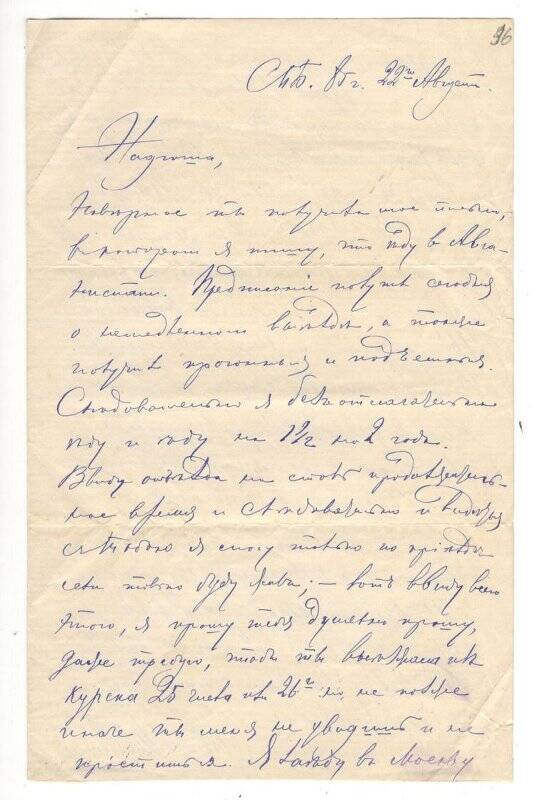 96
СПБ. 85 г. 22го Август.
Надюша,
Наверное ты получила мое письмо,
в котором я пишу, что еду в Авга-
нистан. Предписание получил сегодня
о немедленном выезде, а также
получил прогонныя и подъемныя.
Следовательно я безотлагательно
еду и еду на 1 1/2 или 2 года.
Ввиду отъезда на столь продолжитель-
ное время и следовательно и видеться
с тобою я могу только по приезде
если только буду жив; – вот ввиду всего
этого, я прошу тебя душевно прошу,
даже требую, чтобы ты выехала из
Курска 25 числа или 26го но не позже
иначе ты меня не увидишь и не
простишься. Я заеду в Москву